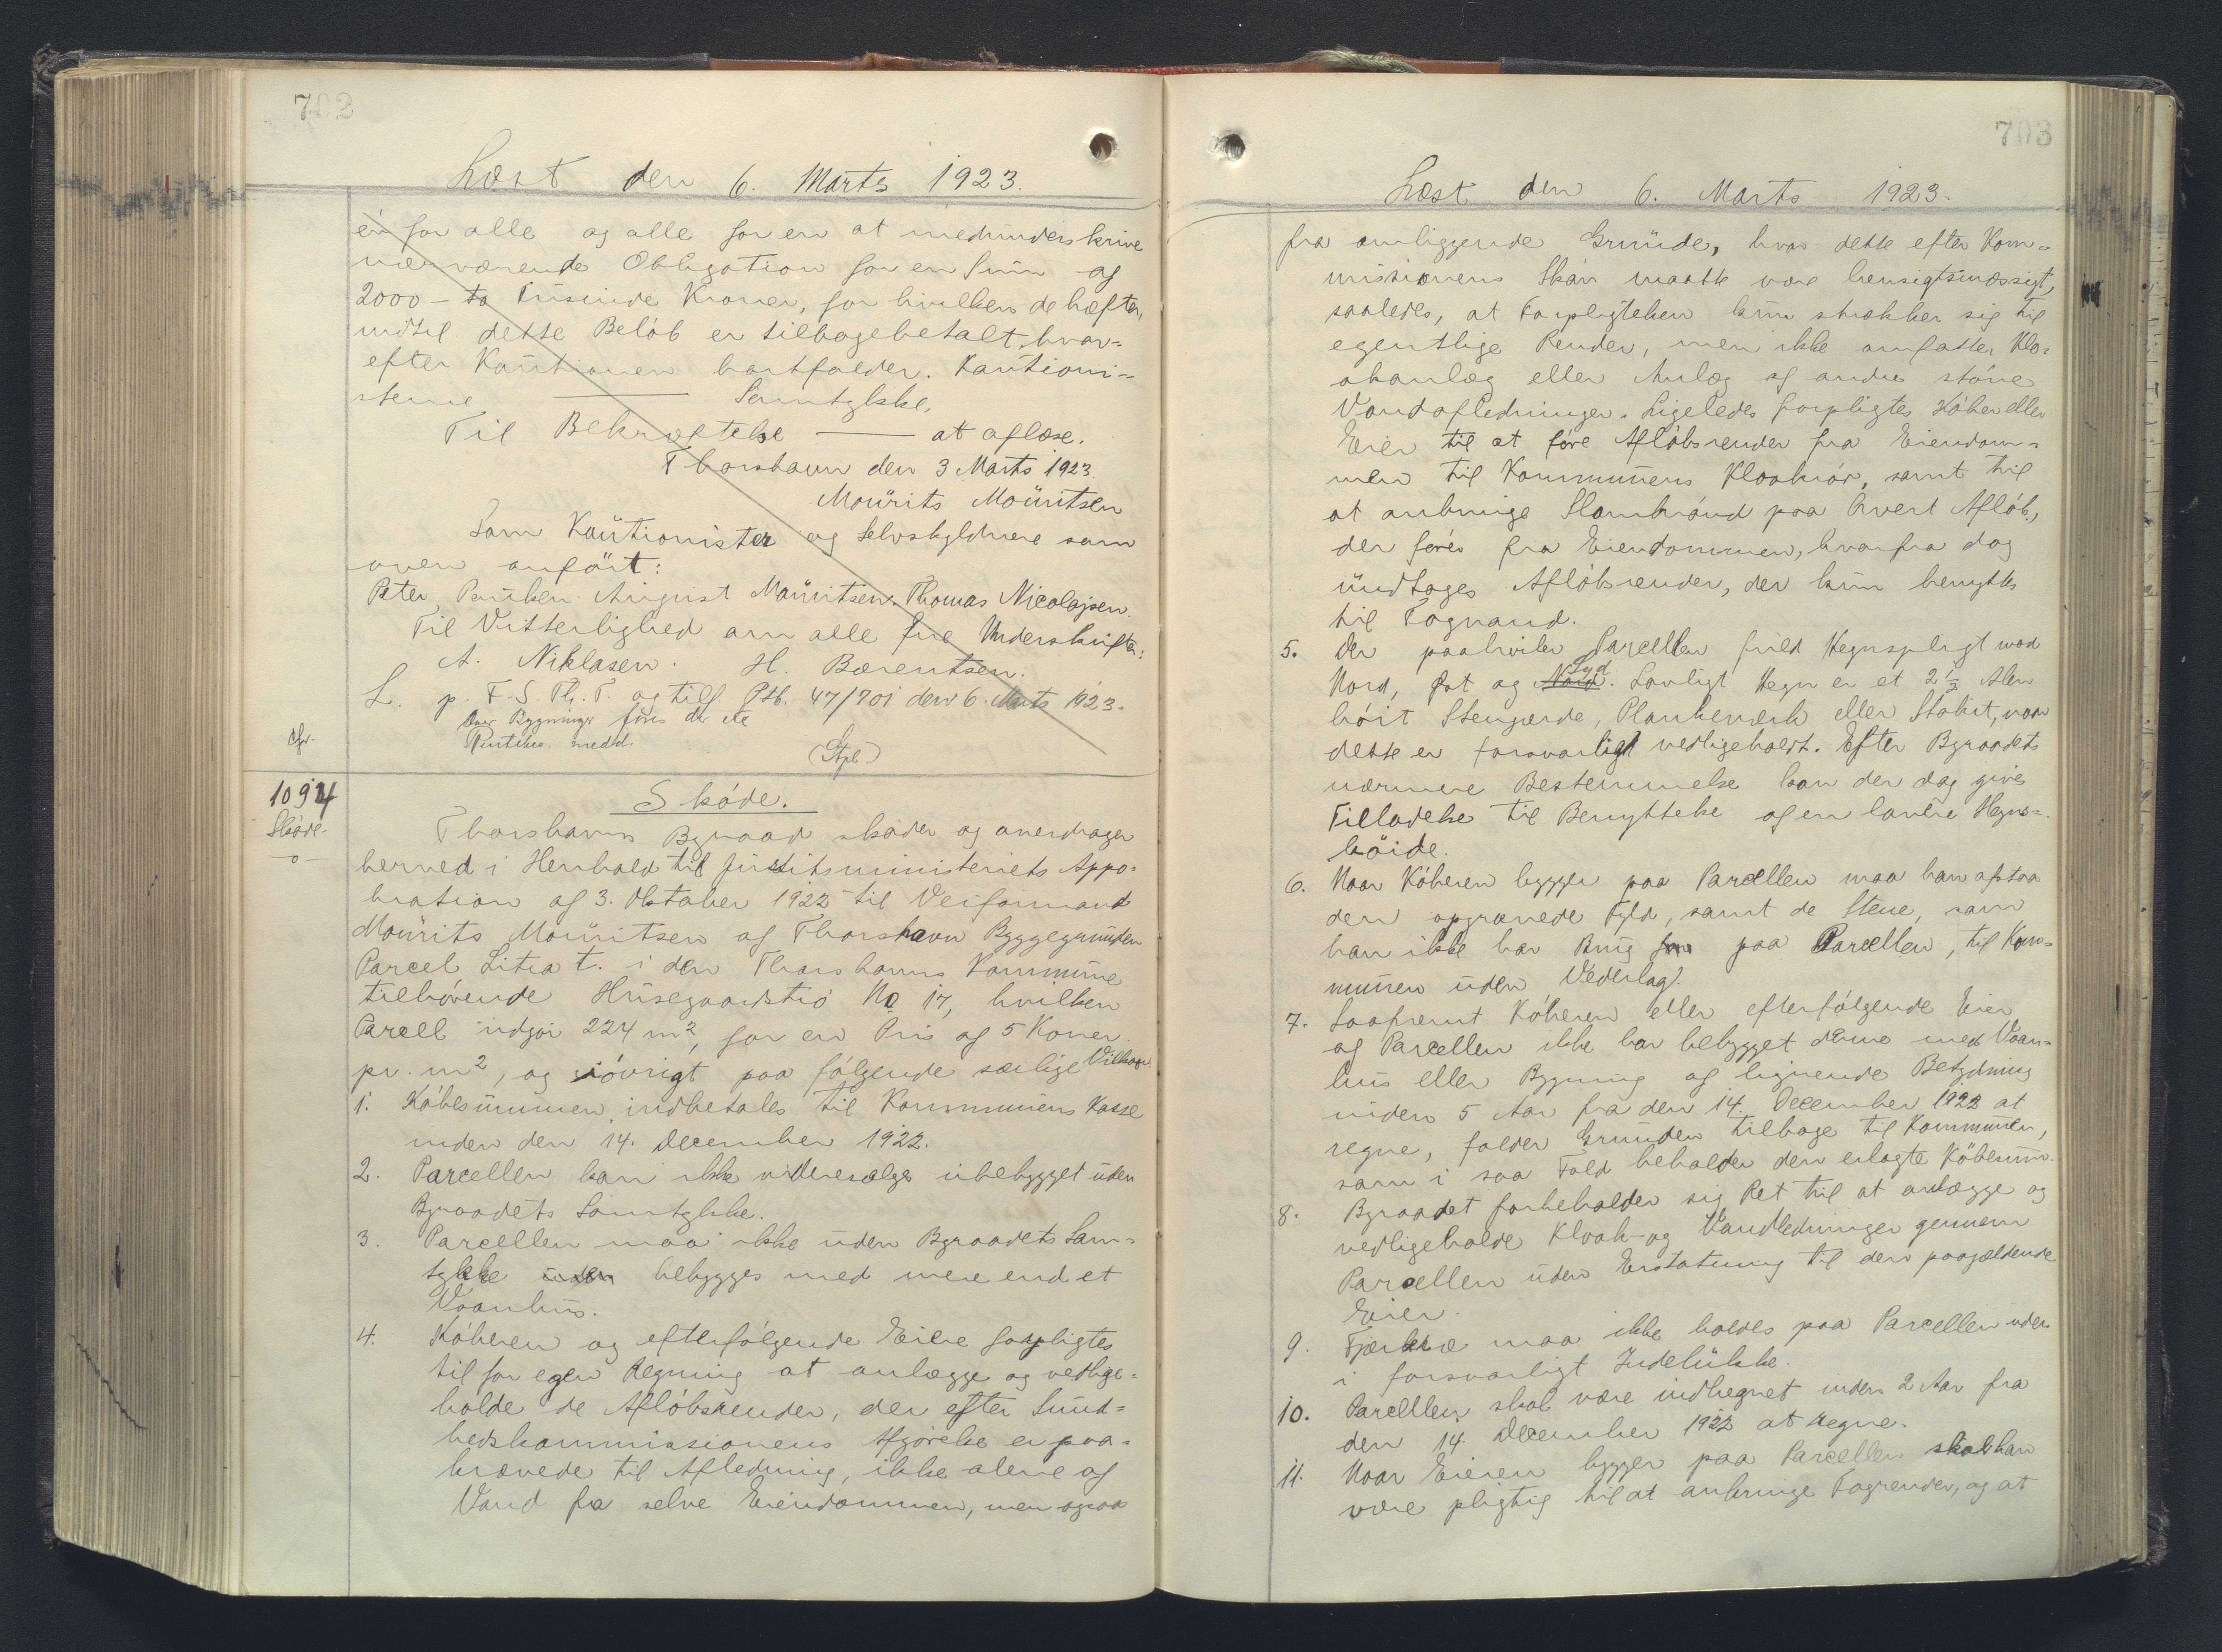 702
Læst den 6. Marts 1923.
én for alle og alle for en at medunderskrive
nærværende Obligation for en Sum af
2000 - to Tusinde Kroner, for hvilken de hæfter,
indtil dette Beløb er tilbagebetalt, hvor=
efter Kautionen bortfalder. Kautioni=
sterne ——— Samtykke.
Til Bekræftelse ——— at aflæse.
Thorshavn den 3 Marts 1923.
Mouritz Mouritsen
Som Kautionister og Selvskyldnere som
oven anført:
Peter Poulsen. August Mouritsen. Thomas Nicolajsen.
Til Vitterlighed om alle fire Underskrifter:
A. Niklasen. H. Bærentsen.
L. p. F. S. Th. T. og tilf. Ptb. 47/701 den 6. Marts 1923.
Over Bygninger føres der ikke
Panteb. medd.
cfr.
(Stpl)
1094
Skøde.
-o-
Skøde.
Thorshavns Byraad skøder og overdrager
herved i Henhold til Justitsministeriets Appo=
bration af 3. Oktober 1922 til Veiformand
Mourits Mouritsen af Thorshavn Byggegrunden
Parcel Litra t. i den Thorshavns Kommune
tilhørende Husegaardstrø No 17, hvilken
Parcel udgør 224 m², for en Pris af 5 Koner
pr. m², og iøvrigt paa følgende særlige Vilkaar
1. Købesummen indbetales til Kommunens Kasse
inden den 14. December 1922.
2. Parcellen kan ikke videresælges ubebygget uden
Byraadets Samtykke.
3. Parcellen maa ikke uden Byraadets Sam=
tykke uden bebygges med mere end et
Vaanhus.
4. Køberen og efterfølgende Eiere forpligtes
til for egen Regning at anlægge og vedlige=
holde de Afløbsrender, der efter Sund=
hedskommissionens Afgørelse er paa=
krævede til Afledning, ikke alene af
Vand fra selve Eiendommen, men ogsaa
703
Læst den 6. Marts 1923.
fra omliggende Grunde, hvor dette efter Kom=
missionens Skøn maatte være hensigtsmæssigt,
saaledes, at Forpligtelsen kun strækker sig til
egentlige Render, men ikke omfatter Klo=
akanlæg eller Anlæg af andre større
Vandafledninger. Ligeledes forpligtes Køber eller
Eier til at føre Afløbsrender fra Eiendom=
men til Kommunens Kloakrør, samt til
at anbringe Slambrønd paa hvert Afløb,
der føres fra Eiendommen, hvorfra dog
undtages Afløbsrender, der kun benyttes
til Tagvand.
5. Der paahviler Parcellen fuld Hegnspligt mod
Nord, Øst og Nord Syd. Lovligt Hegn er et 2½ Alen
høit Stengærde, Plankeværk eller Stakit, naar
dette er forsvarligt vedligeholdt. Efter Byraadets
nærmere Bestemmelse kan der dog gives
Tilladelse til Benyttelse af en lavere Hegns=
høide.
6. Naar Køberen bygger paa Parcellen maa han afstaa
den opgravede Fyld, samt de Stene, som
han ikke har Brug for paa Parcellen, til Kom=
munen uden Vederlag.
7. Saafremt Køberen eller efterfølgende Eier
af Parcellen ikke har bebygget denne med Vaan=
hus eller Bygning af lignende Betydning
inden 5 Aar fra den 14. December 1922 at
regne, falder Grunden tilbage til Kommunen,
som i saa Fald beholder den erlagte Købesum.
8. Byraadet forbeholder sig Ret til at anlægge og
vedligeholde Kloak- og Vandledninger gennem
Parcellen uden Erstatning til den paagældende
Eier.
9. Fjerkræ maa ikke holdes paa Parcellen uden
i forsvarligt Indelukke.
10. Parcellen skal være indhegnet inden 2 Aar fra
den 14. December 1922 at regne.
11. Naar Eieren bygger paa Parcellen skal han
være pligtig til at anbringe Tagrender, og at